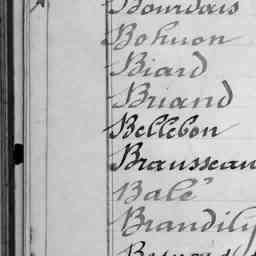 Bourdais
Bohuon
Biard
Briand
Bellébon
Brausseau
Balé
Brandily